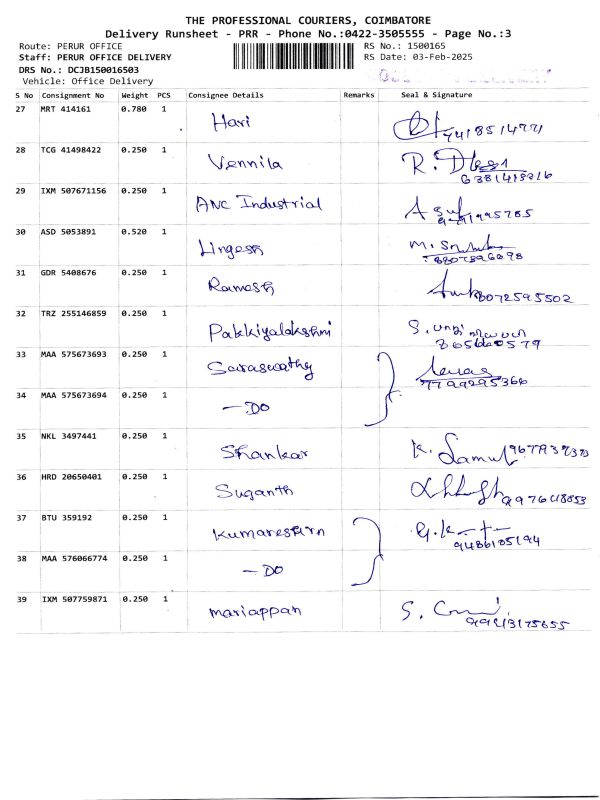 THE PROFESSIONAL COURIERS, COIMBATORE
Delivery Runsheet - PRR - Phone No.:0422-3505555 - Page No.:3
Route: PERUR OFFICE
RS No.: 1500165
Staff: PERUR OFFICE DELIVERY
RS Date: 03-Feb-2025
DRS No.: DCJB150016503
Vehicle: Office Delivery
S No Consignment No Weight PCS Consignee Details Remarks Seal & Signature
27 MRT 414161 0.780 1 Hari
28 TCG 41498422 0.250 1 Vennila
29 IXM 507671156 0.250 1 ANC Industrial
30 ASD 5053891 0.520 1 Lingesh
31 GDR 5408676 0.250 1 Ramesh 8072595502
32 TRZ 255146859 0.250 1 Pakkiyalakshmi
33 MAA 575673693 0.250 1 Saraswathy 7799295366
34 MAA 575673694 0.250 1 — DO
35 NKL 3497441 0.250 1 Shankar
36 HRD 20650401 0.250 1 Suganth
37 BTU 359192 0.250 1 Kumareshrn
38 MAA 576066774 0.250 1 — DO
39 IXM 507759871 0.250 1 mariappan